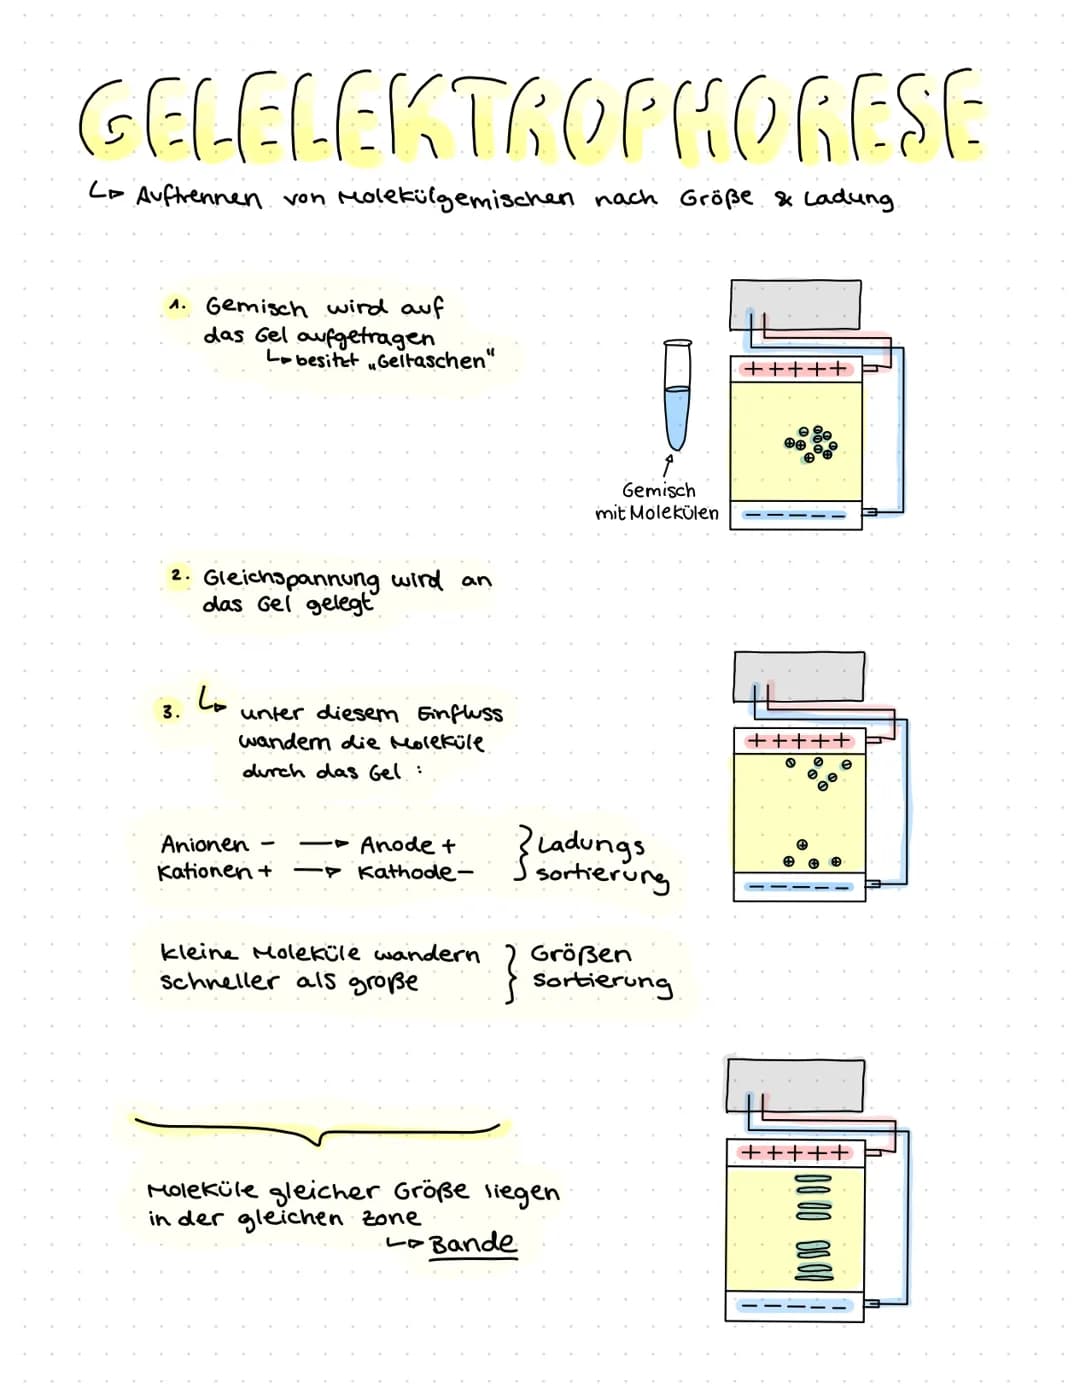 GELELEKTROPHORESE
↳ Auftrennen von Molekülgemischen nach Größe & Ladung
1. Gemisch wird auf
das Gel aufgetragen
↳ besitzt „Geltaschen"
+ + + + +
Gemisch
mit Molekülen
- - - - -
2. Gleichspannung wird an
das Gel gelegt
3. ↳ unter diesem Einfluss
wandern die Moleküle
durch das Gel :
+ + + + +
Anionen - → Anode +
Kationen + → Kathode -
} Ladungs
sortierung
- - - - -
kleine Moleküle wandern
schneller als große
} Größen
sortierung
+ + + + +
Moleküle gleicher Größe liegen
in der gleichen Zone
↳ Bande
- - - - -